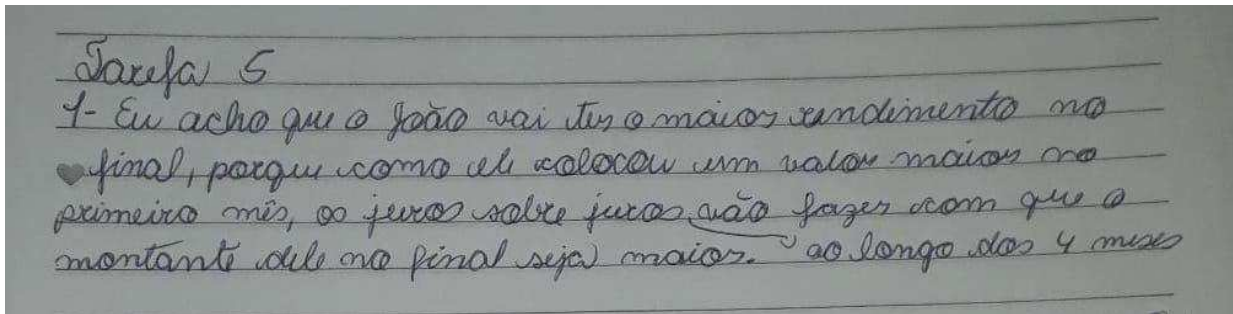 Tarefa 5
1- Eu acho que o João vai ter o maior rendimento no
final, porque como ele colocou um valor maior no
primeiro mês, os juros sobre juros vão fazer com que o
montante dele no final seja maior. ao longo dos 4 meses